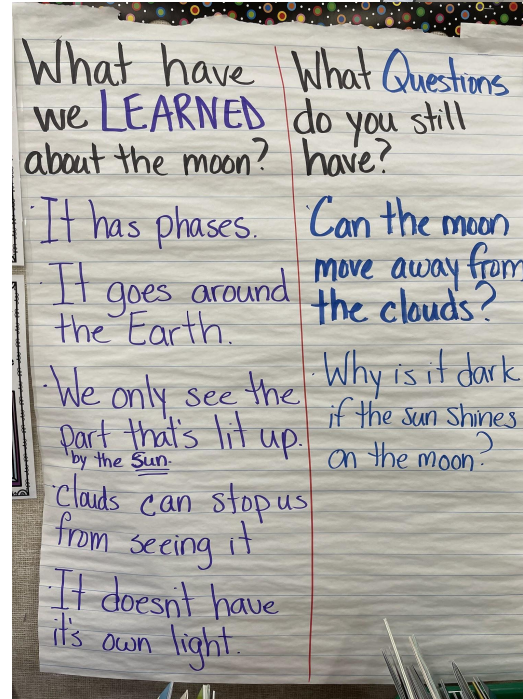 What have
we LEARNED
about the moon?
· It has phases.
· It goes around
the Earth.
· We only see the
part that's lit up.
by the Sun.
· Clouds can stop us
from seeing it
· It doesn't have
it's own light.
What Questions
do you still
have?
· Can the moon
move away from
the clouds?
· Why is it dark
if the sun shines
on the moon?